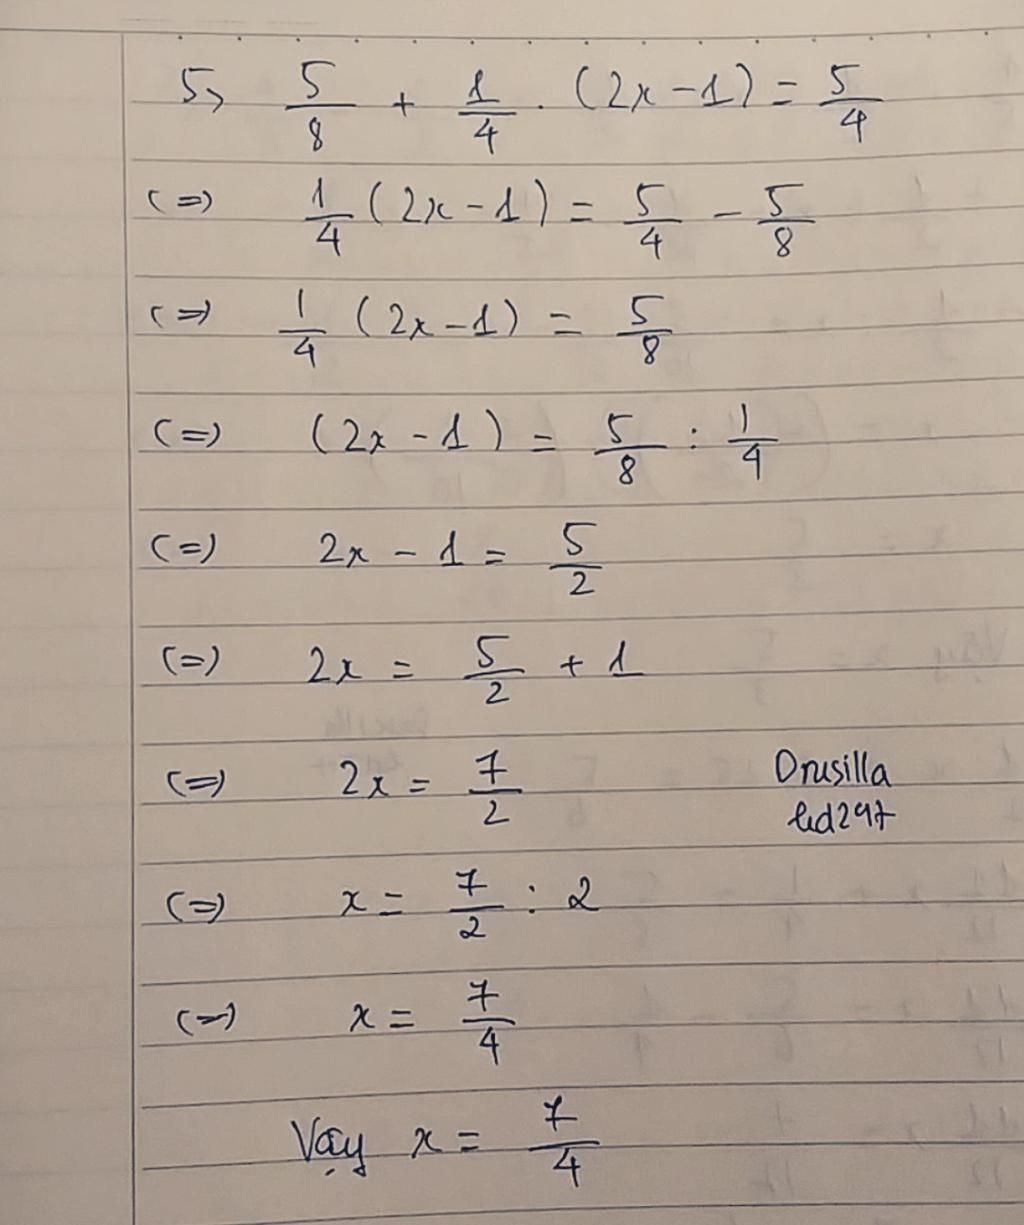 5, 5/8 + 1/4 . (2x - 1) = 5/4
(=) 1/4 (2x - 1) = 5/4 - 5/8
(=) 1/4 (2x - 1) = 5/8
(=) (2x - 1) = 5/8 : 1/4
(=) 2x - 1 = 5/2
(=) 2x = 5/2 + 1
(=) 2x = 7/2
Drusilla
(=) x = 7/2 : 2
(=) x = 7/4
Vậy x = 7/4